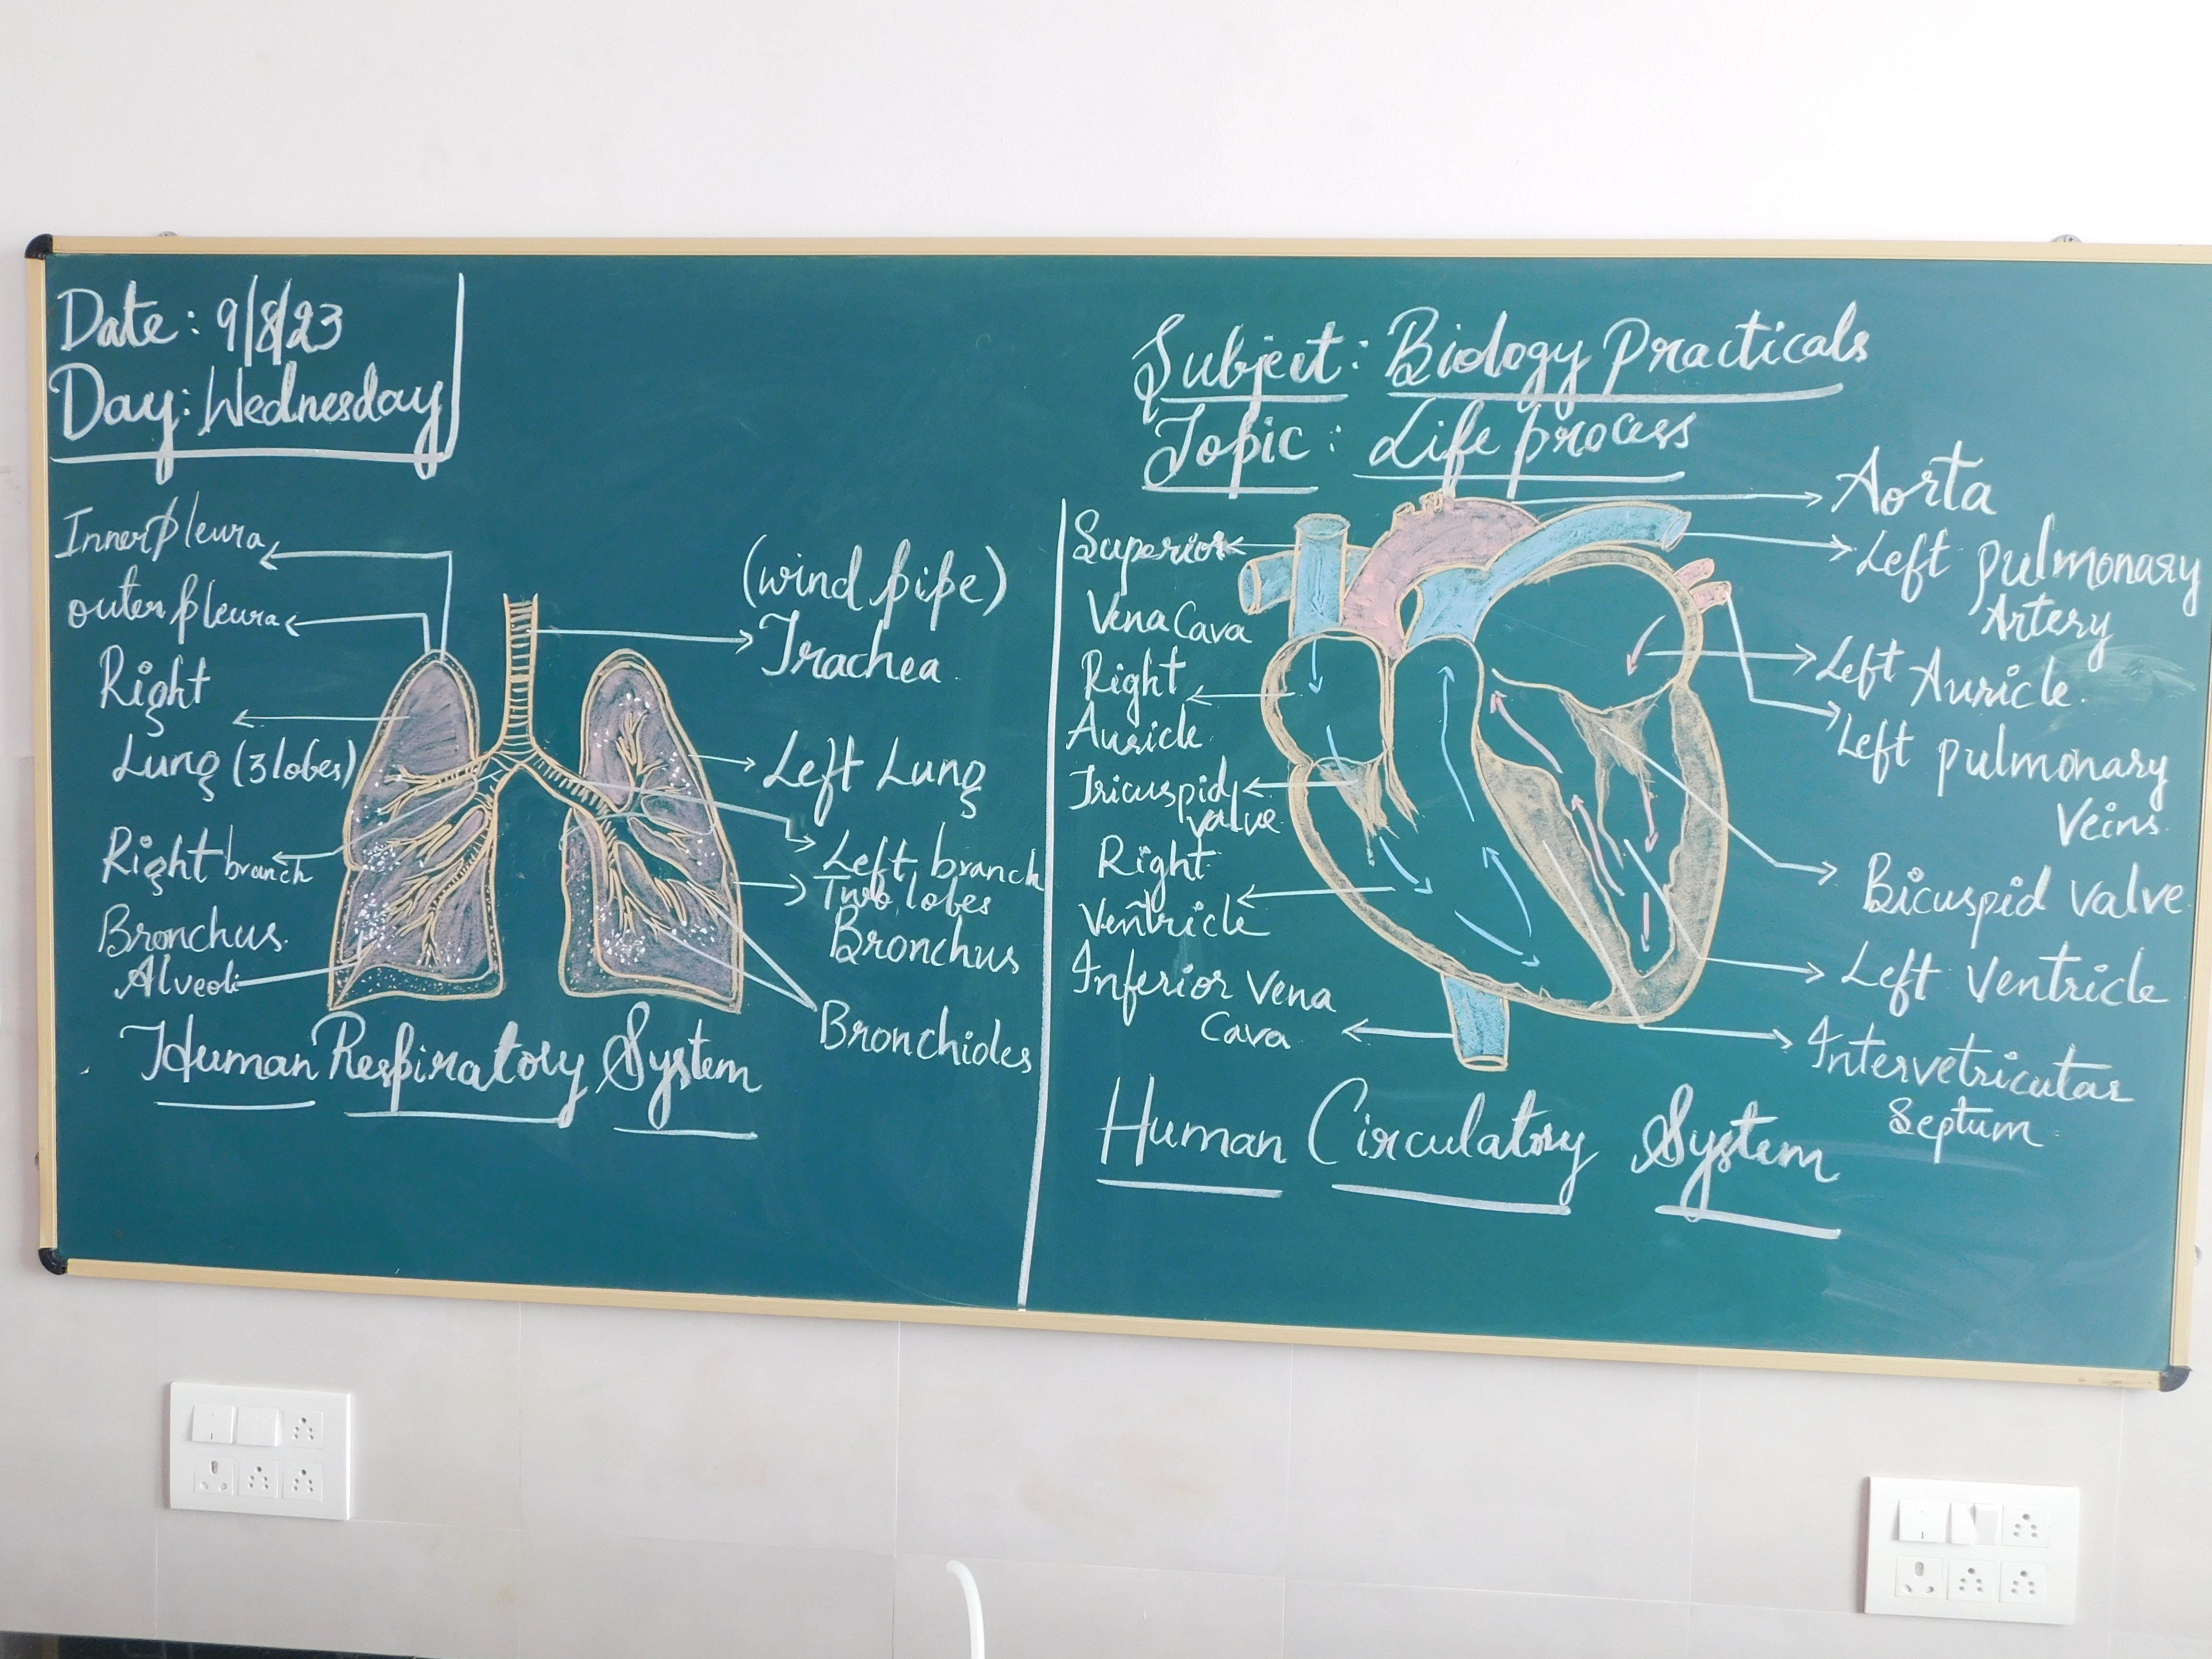 Date: 9/8/23
Day: Wednesday
Subject: Biology Practicals
Topic: Life process
Inner pleura
outer pleura
Right
Lung (3 lobes)
Right branch
Bronchus.
Alveoli
(wind pipe)
Trachea
Left Lung
Left branch
Two lobes
Bronchus
Bronchioles
Human Respiratory System
Superior
Vena Cava
Right
Auricle
Tricuspid
valve
Right
Ventricle
Inferior Vena
Cava
Aorta
Left pulmonary
Artery
Left Auricle.
Left pulmonary
Veins.
Bicuspid valve
Left Ventricle
Intervetricutar
Septum
Human Circulatory System